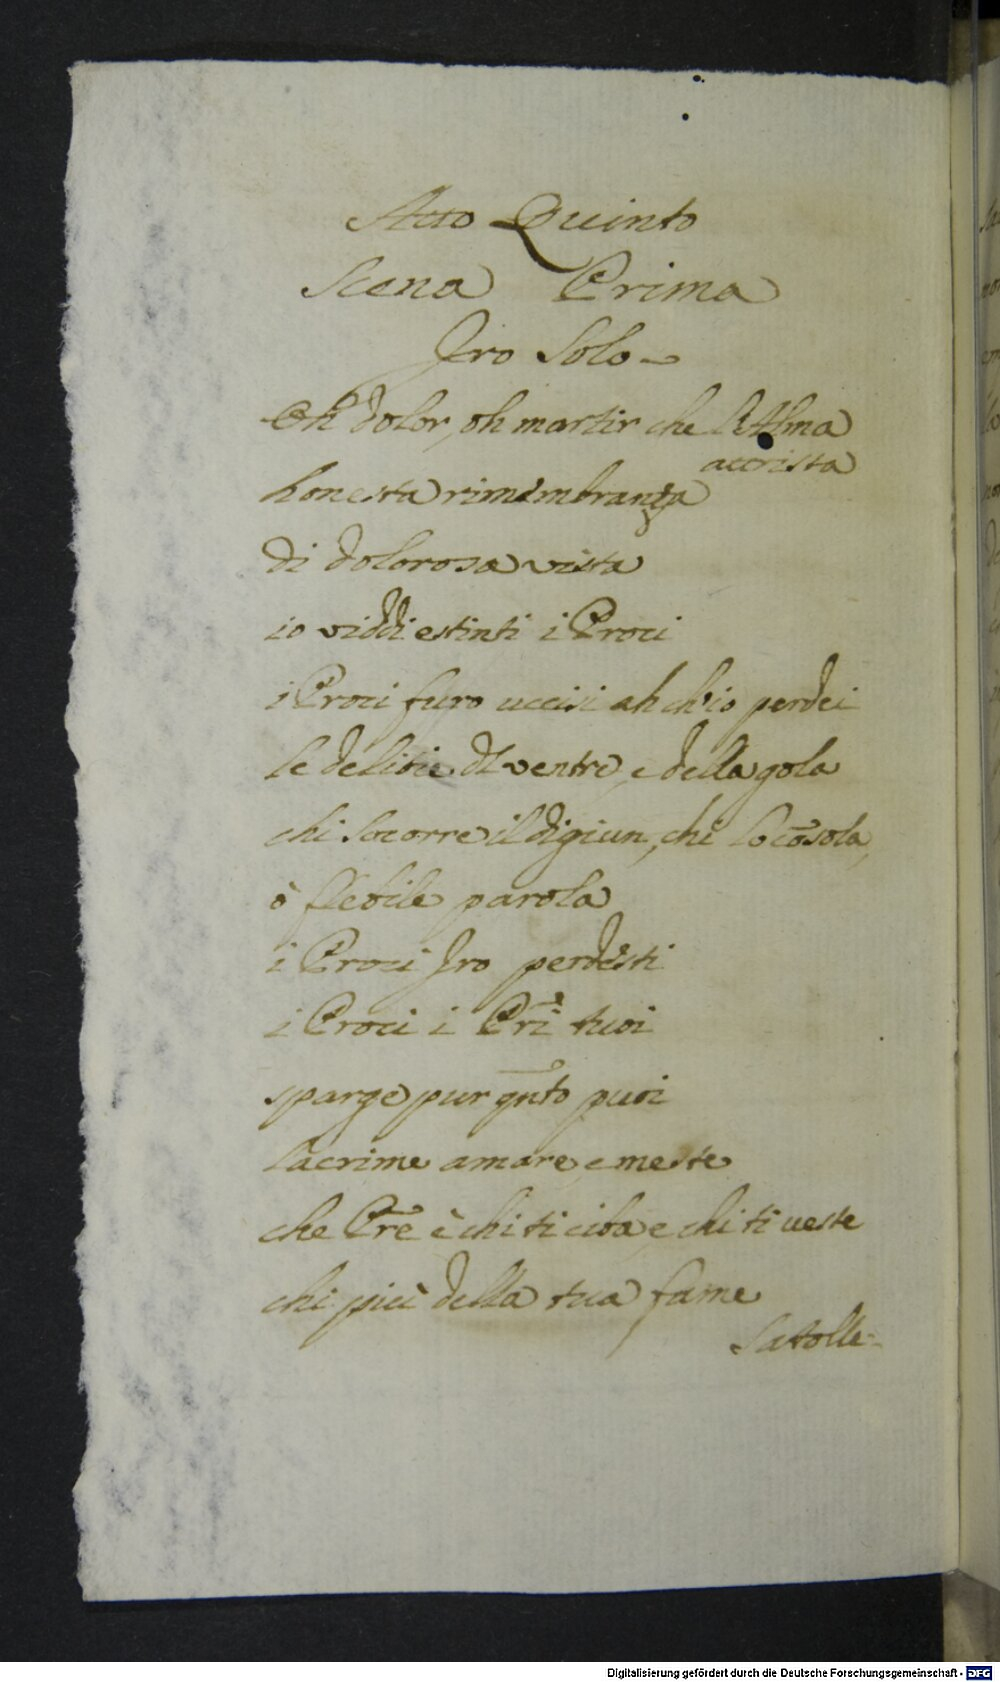 Atto Quinto
Scena Prima
Iro Solo
Oh dolor, oh martir che l'Alma
attrista
honesta rimembranza
di dolorosa vista
io viddi estinti i Proci
i Proci furo uccisi ah ch'io perdei
le delitie dl ventre, e della gola
chi socorre il digiun, chi lo cõsola,
ò flebile parola
i Proci Iro perdesti
i Proci i Pri tuoi
sparge pur qnto puoi
lacrime amare, e meste
che Pre è chi ti ciba, e chi ti veste
chi più della tua fame
Satolle-
Digitalisierung gefördert durch die Deutsche Forschungsgemeinschaft - DFG